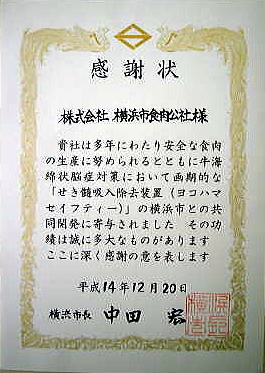 感謝状
株式会社 横浜市食肉公社様
貴社は多年にわたり安全な食肉
の生産に努められるとともに牛海
綿状脳症対策において画期的な
「せき髄吸入除去装置（ヨコハマ
セイフティー）」の横浜市との共
同開発に寄与されました その功
績は誠に多大なものがあります
ここに深く感謝の意を表します
平成14年12月20日
横浜市長 中田 宏